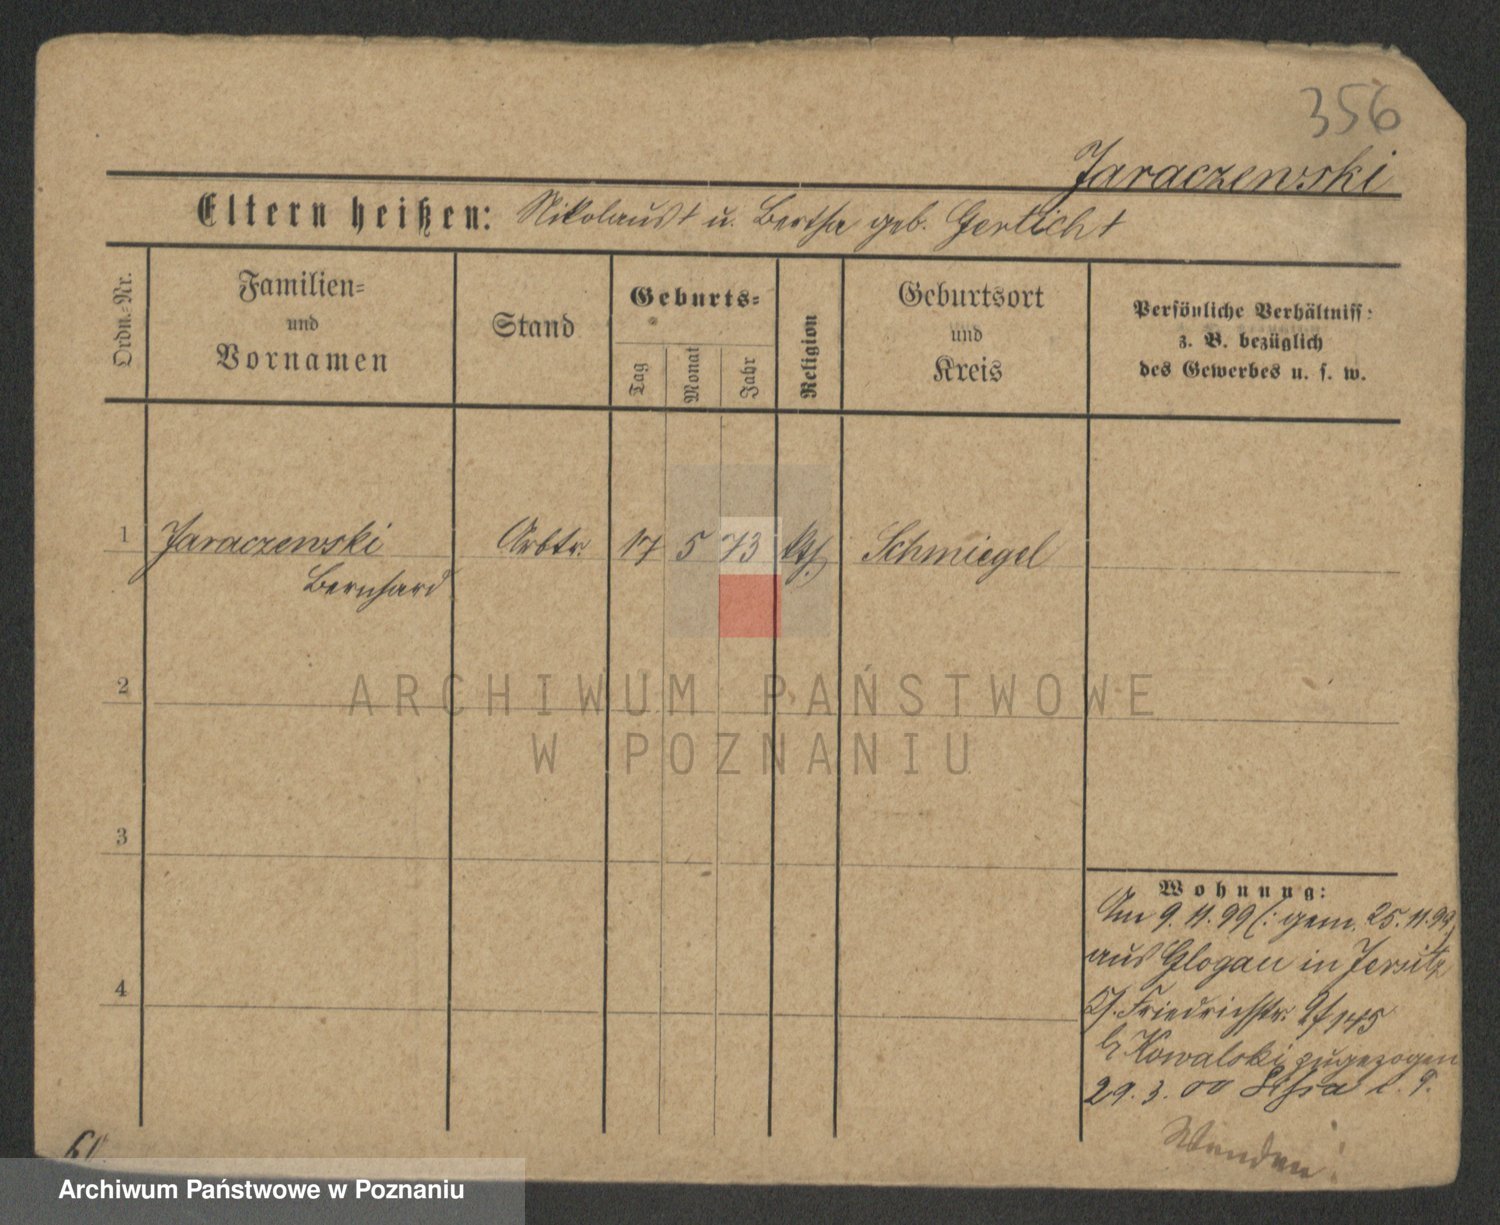 356
Jaraczewski
Eltern heißen: Nikolaus † u. Bertha geb. Gerlicht
Ordn.-Nr.
Familien-
und
Vornamen
Stand
Geburts-
Tag
Monat
Jahr
Religion
Geburtsort
und
Kreis
Persönliche Verhältniss:
z. B. bezüglich
des Gewerbes u. s. w.
1 Jaraczewski Arbtr. 17 5 73 kth. Schmiegel
Bernhard
2
ARCHIWUM PAŃSTWOWE
W POZNANIU
3
4
Wohnung:
Am 9.11.99 /: gem. 25.11.99
aus Glogau in Jersitz
Friedrichstr. 145
b/ Kowalski zugezogen
29.3.00 Lissa i. P.
Wenden!
Archiwum Państwowe w Poznaniu